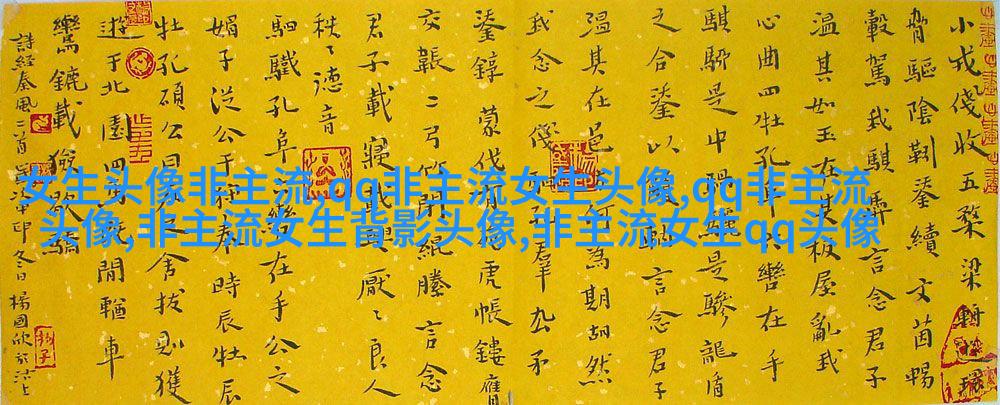 女生头像非主流,qq非主流女生头像,qq非主流
头像,非主流女生背影头像,非主流女生qq头像
小戎俴收五楘梁輈游環
脅驅陰靷鋈續文茵暢
轂駕我騏馵言念君子
溫其如玉在其板屋亂我
心曲四牡孔阜六轡在手
騏駵是中騧驪是驂龍盾
之合鋈以言念君子
溫其在邑方何為期胡然
我念之俴駟孔羣厹矛
鋈錞蒙伐有苑虎帳鏤膺
交韔二弓竹閉緄縢言念
君子載寢載興厭〻良人
秩〻德音
駟驖孔阜六轡在手公之
媚子從公于狩奉時辰牡辰
牡孔碩公曰左之舍拔則獲
遊于北園四馬既閒輶車
鸞鑣載獫歇驕
詩經秦風二首 冬日楊國欣於